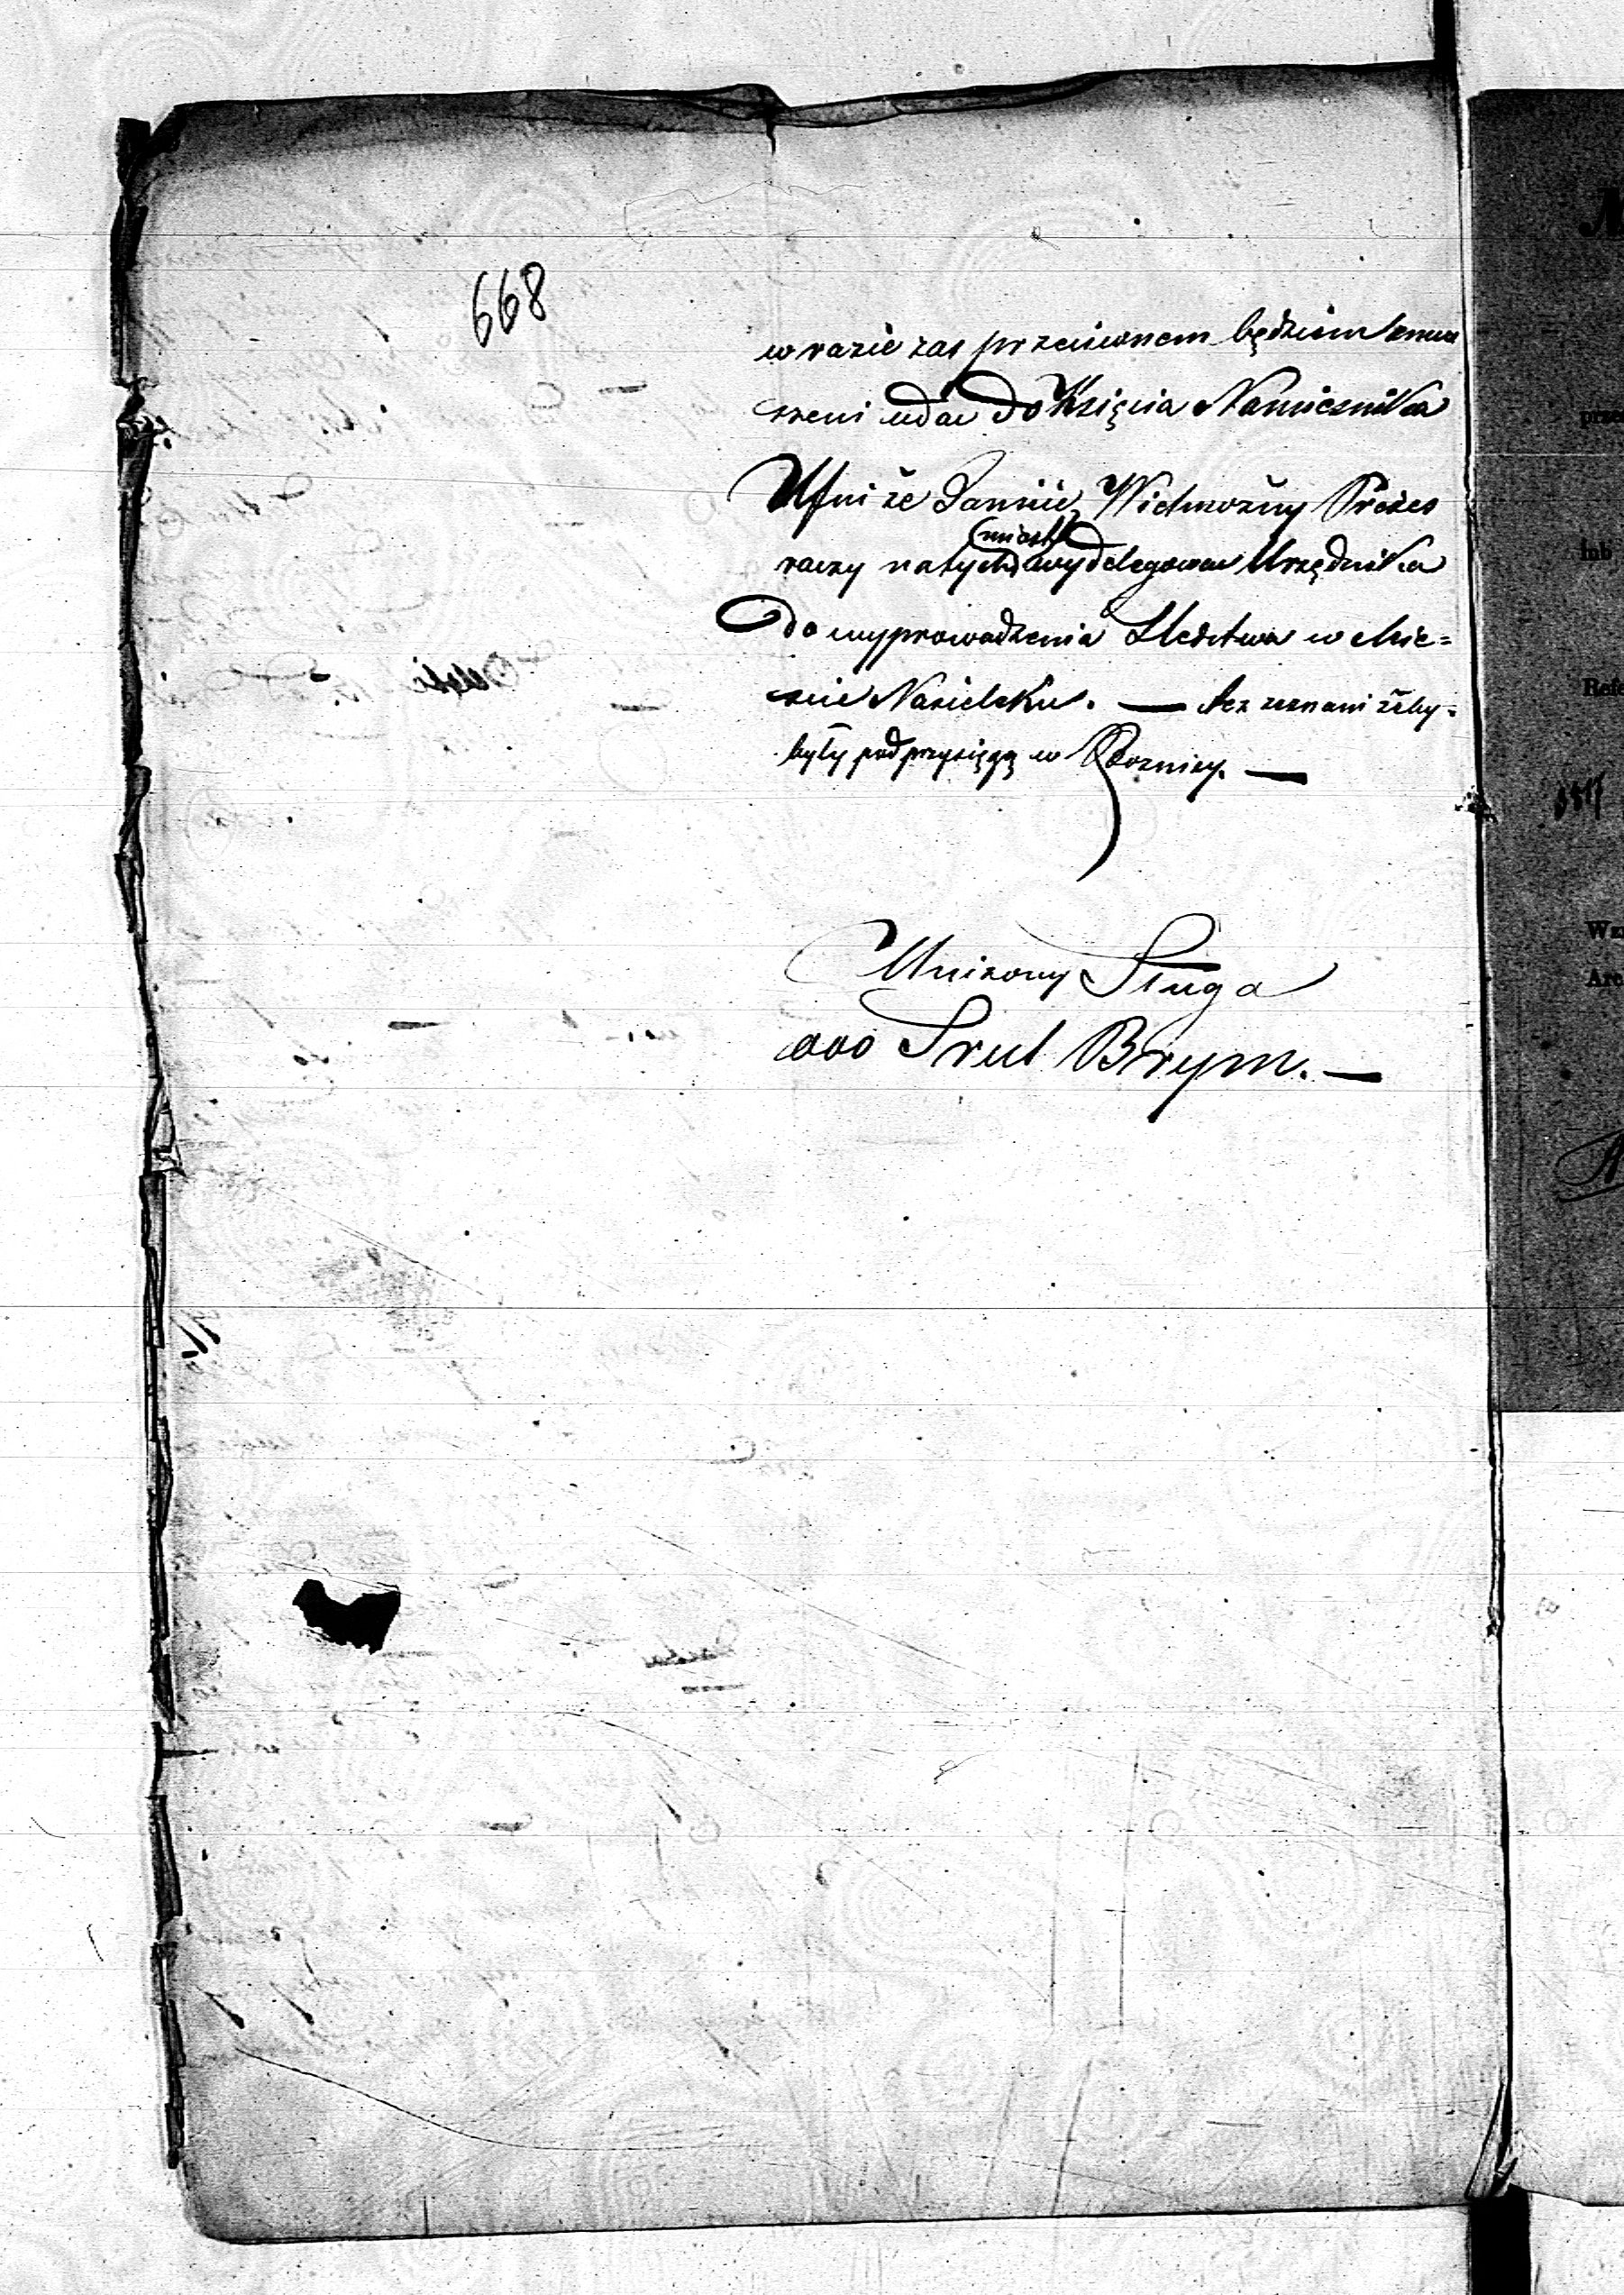 668
w razie zas przeciwnem będziem zmu
szeni udac do Księcia Namiesnika
Ufni że Jasnie Wielmożny Prezes
miast
raczy natych wydelegowac Urzędnika
do wyprowadzenia Sledstwa w Mie=
scie Nasielsku. — Acz zeznani żeby
były pod przysięgą w Bożnicy. —
Unizony Sługa
ooo Srul Brym. —